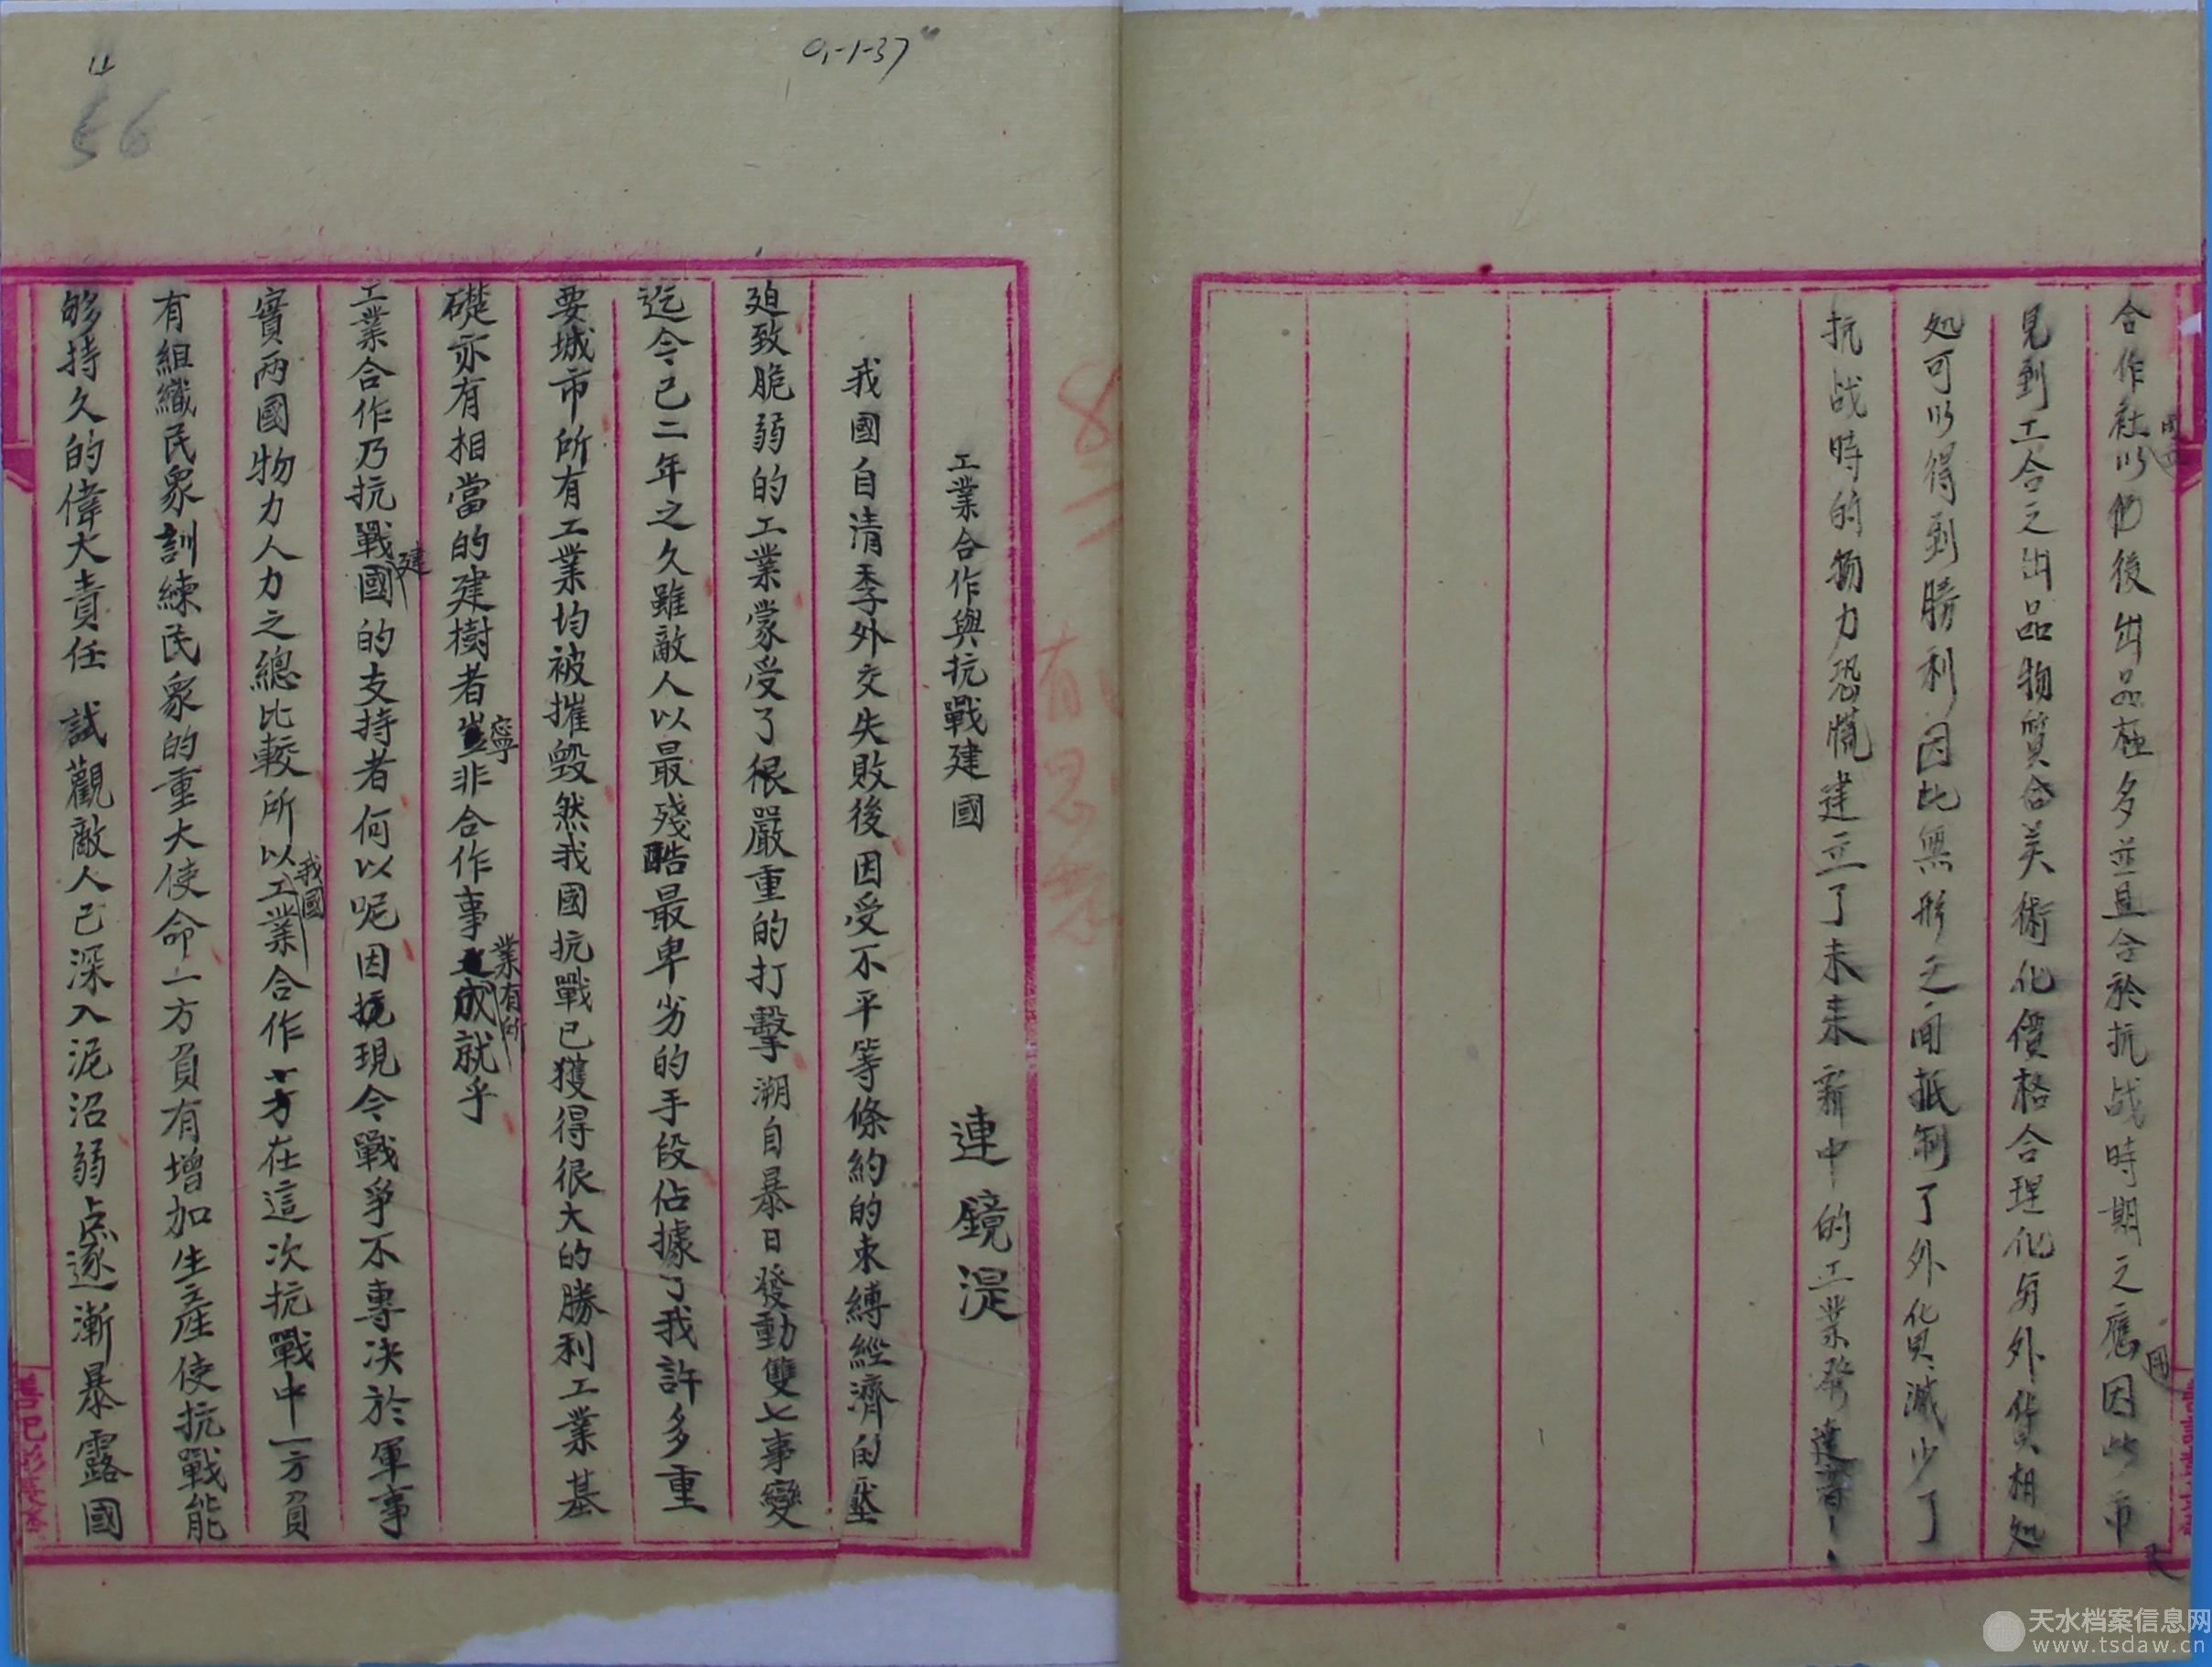 合作社以后出品極多並且合於抗战時期之應用因此市民
見到工合之出品物質合美術化價格合理化与外貨相処
処可以得到勝利因此無形之间抵制了外貨减少了
抗战時的物力恐慌建立了未来新中的工業發達
工業合作與抗戰建國 連鏡湜
我國自清季外交失敗後因受不平等條約的束縛經濟的壓
廹致脆弱的工業蒙受了很嚴重的打擊溯自暴日發動雙七事變
迄今已二年之久雖敵人以最殘酷最卑劣的手段佔據了我許多重
要城市所有工業均被摧毀然我國抗戰已獲得很大的勝利工業基
礎亦有相當的建樹者寧非合作事業有所成就乎
工業合作乃抗戰建國的支持者何以呢因現今戰爭不專决於軍事
實兩國物力人力之總比較所以我國工業合作在這次抗戰中一方負
有組織民衆訓練民衆的重大使命一方負有增加生産使抗戰能
够持久的偉大責任 試觀敵人已深入泥沼弱点逐漸暴露國
9-1-37
56
天水档案信息网
www.tsdaw.cn